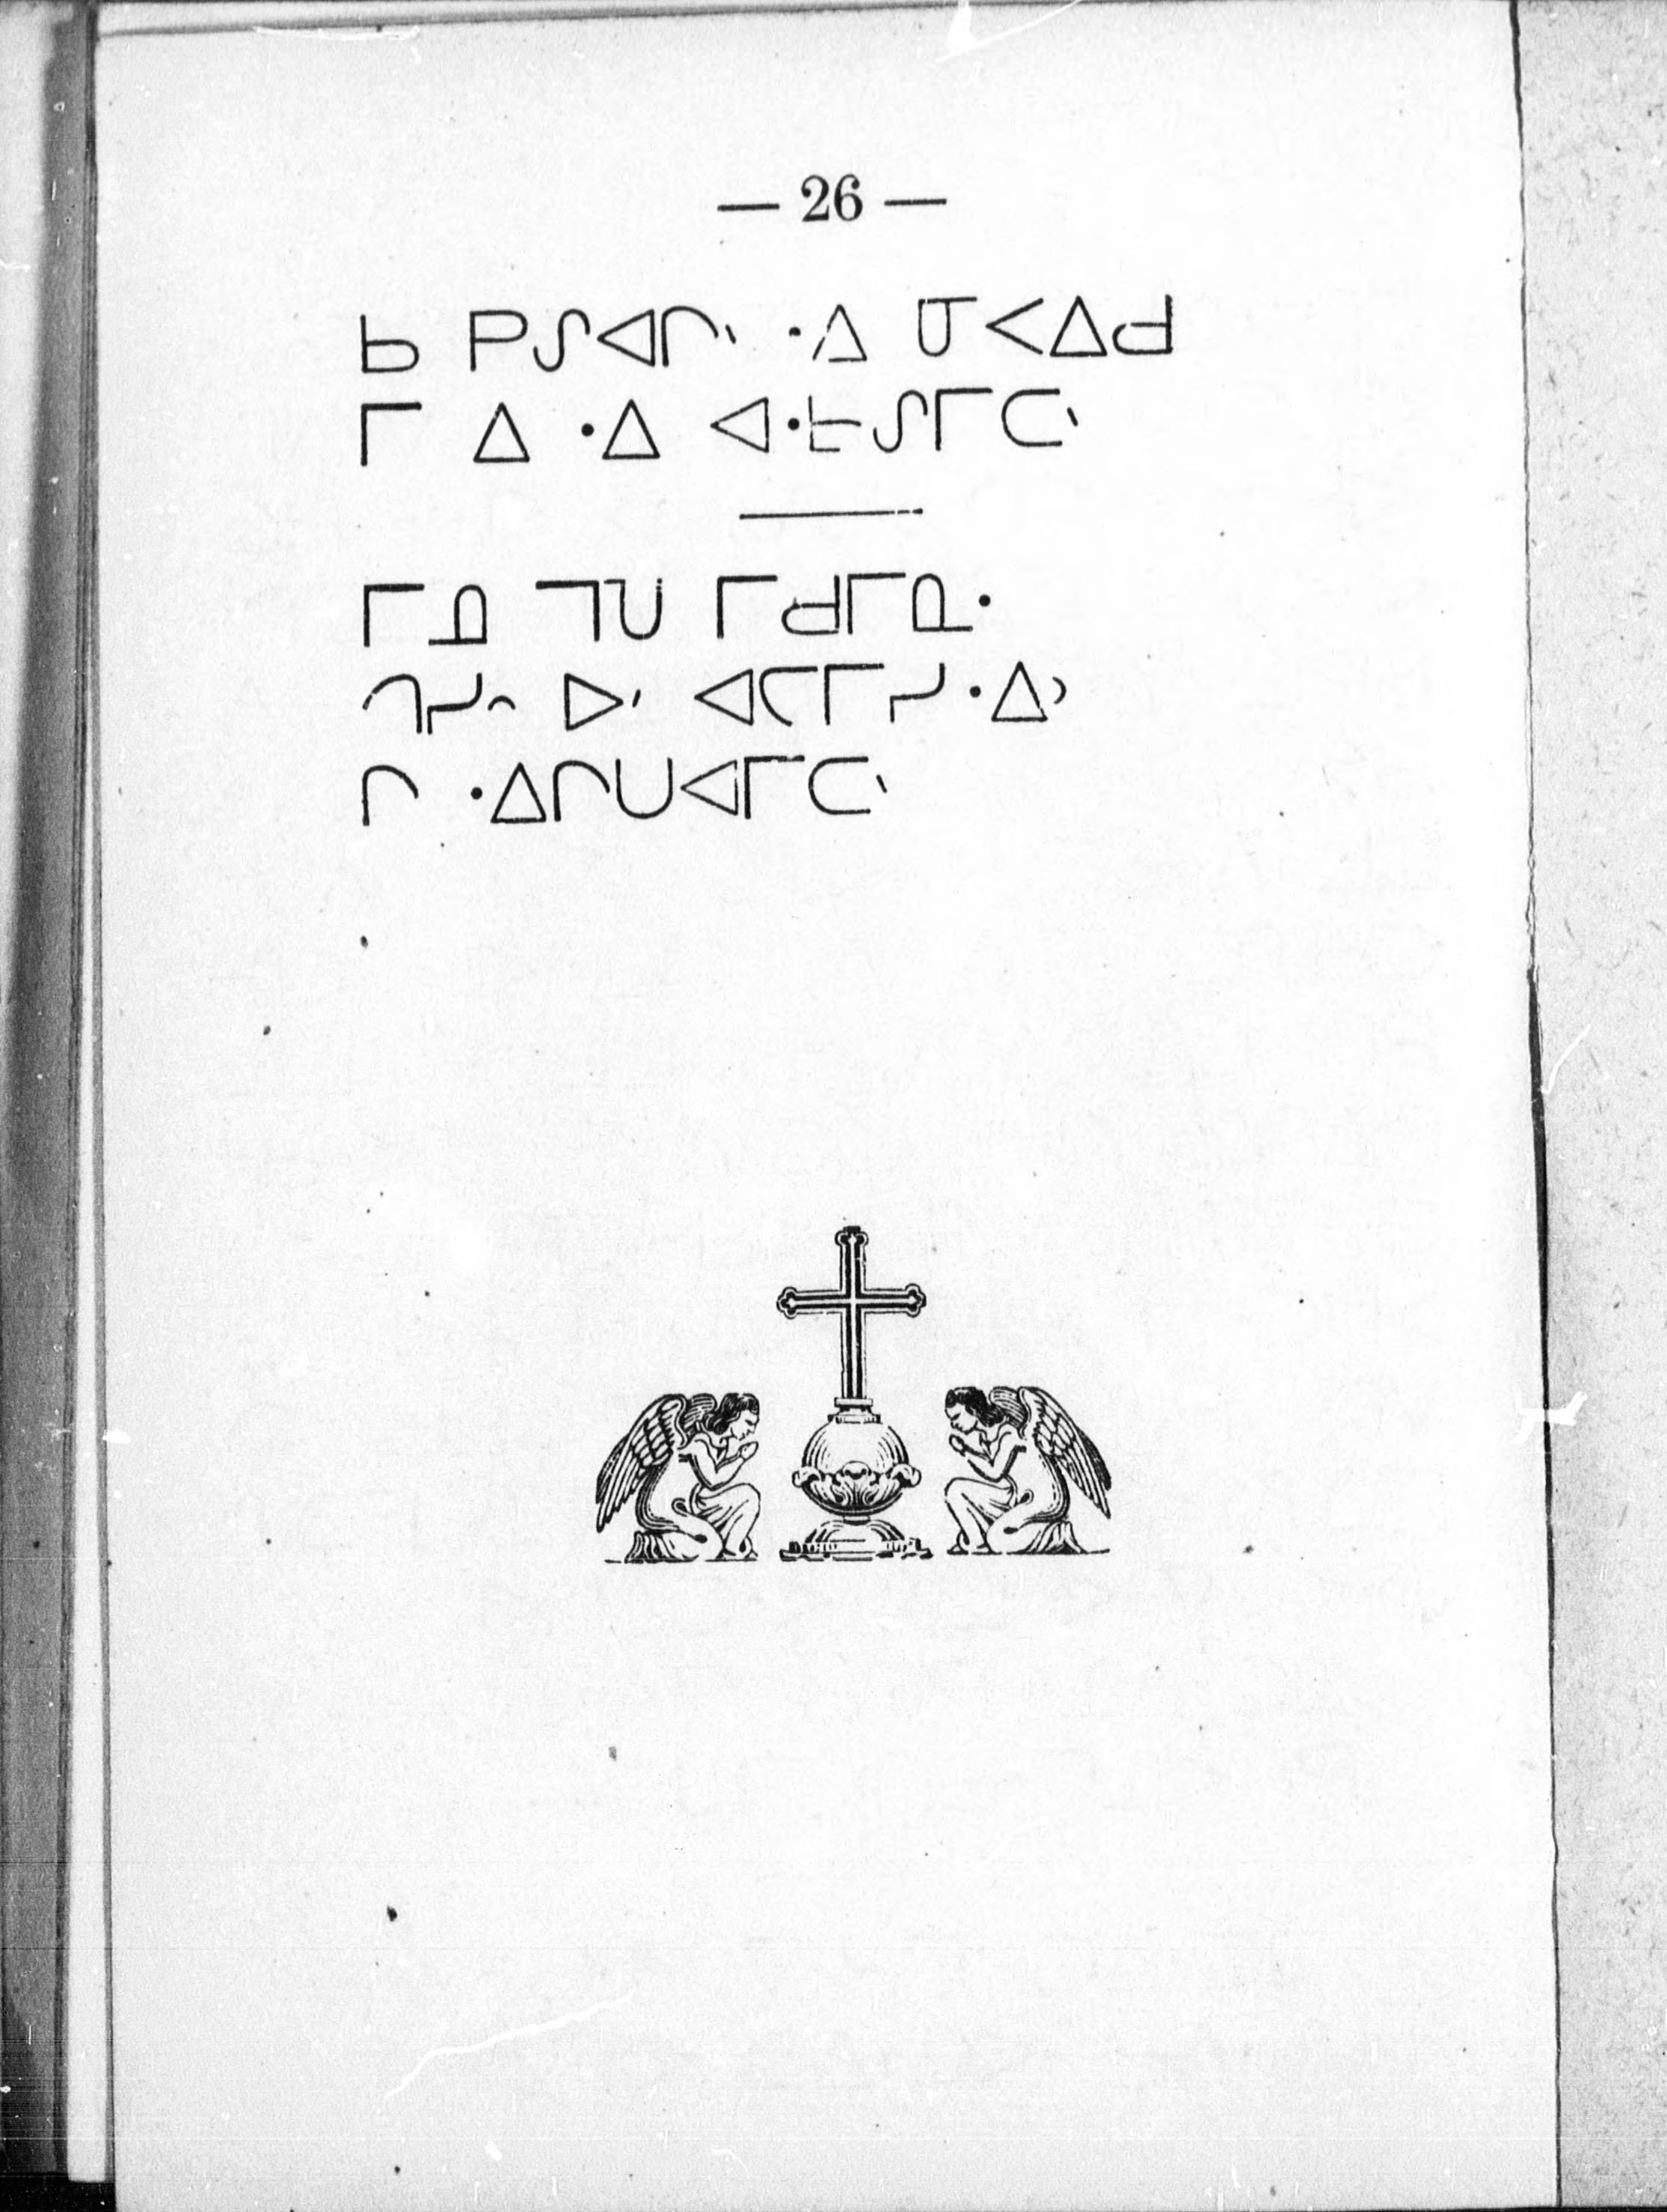 — 26 —
ᑲ ᑭᔑᐊᒋᐠ ᐧᐃ ᓀᐸᐃᑯ
ᒥ ᐃ ᐧᐃ ᐊᐧᑲᔑᒥᑕᐠ
ᒥᓇ ᒣᑌ ᒥᑯᒥᓄᐧ
ᒉᓯᐢ ᐅᐟ ᐊᑕᒥᓯᐧᐃᐣ
ᒋ ᐧᐃᒋᑌᐊᒥᑕᐠ